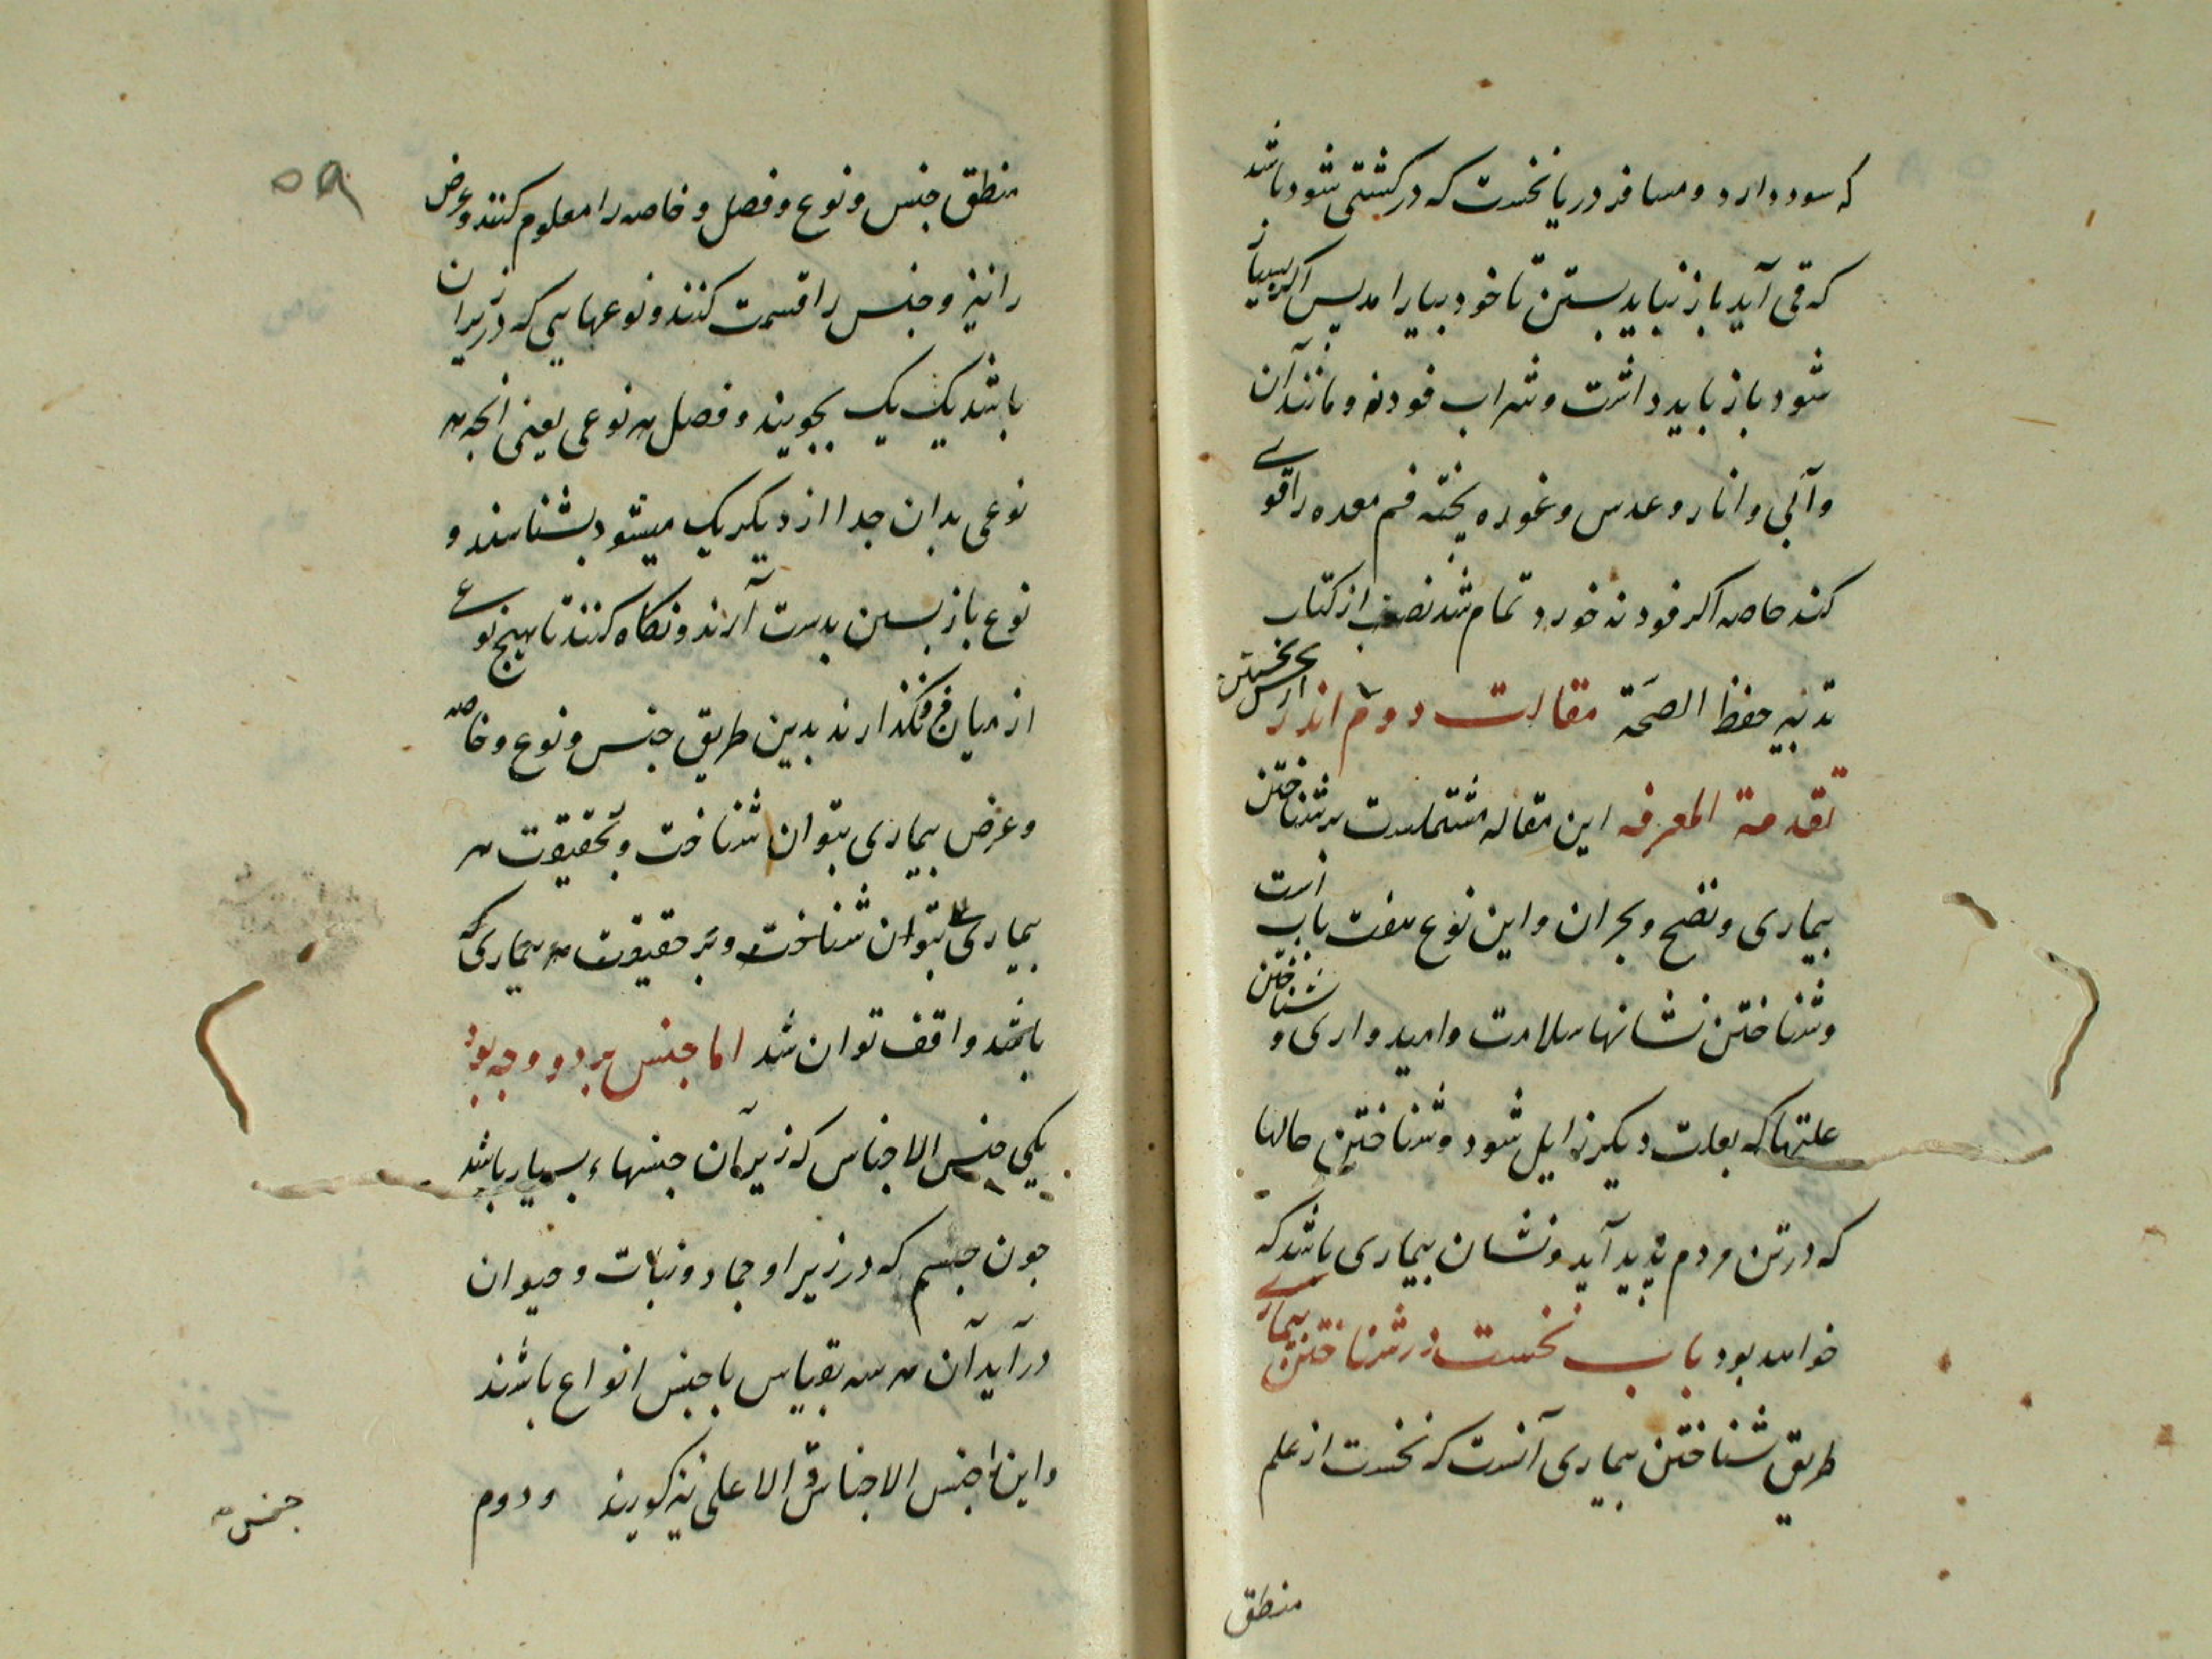 که سود دارد و مسافر دریا نخست که در کشتی شود باشد
که قی آید باز نباید بستن تا خود بیارامد پس اکر بسیار
شود باز باید داشت و شراب فودنه و مانند آن
و آبی و انار و عدس و غوره پخته فم معده را قوی
کند خاصه اکر فودنه خورد تمام شد نصف از کتاب
تدبیر حفظ الصحة مقالت دوم اندر
تقدمة المعرفه این مقاله مشتملست بر شناختن
بیماری و نضج و بحران و این نوع هفت باب است
و شناختن نشانها سلامت و امیدواری و شناختن
علتها که بعلت دیکر زایل شود و شناختن حالها
که در تن مردم پدید آید و نشان بیماری باشد که
خواهد بود باب نخست در شناختن بیماری
طریق شناختن بیماری آنست که نخست از علم
منطق
۵۹
منطق جنس و نوع و فصل و خاصه را معلوم کنند و عرض
را نیز و جنس را قسمت کنند و نوعهایی که در زیر آن
باشد یک یک بجویند و فصل هر نوعی یعنی انجه هر
نوعی بدان جدا از دیکر یک میشود بشناسند و
نوع باز بسین بدست آرند و نکاه کنند تا هیچ نوع
از میان فرو نکذارند بدین طریق جنس و نوع و خاصه
و عرض بیماری بتوان شناخت و بحقیقت هر
بیماری بتوان شناخت و بر حقیقت هر بیماری که
باشد واقف توان شد اما جنس بر دو وجه بود
یکی جنس الاجناس که زیر آن جنسهاء بسیار باشد
جون جسم که در زیر او جماد و نبات و حیوان
در آید آن هر سه بقیاس با جنس انواع باشند
و این را جنس الاجناس و الاعلی نیز کویند و دوم
جنس